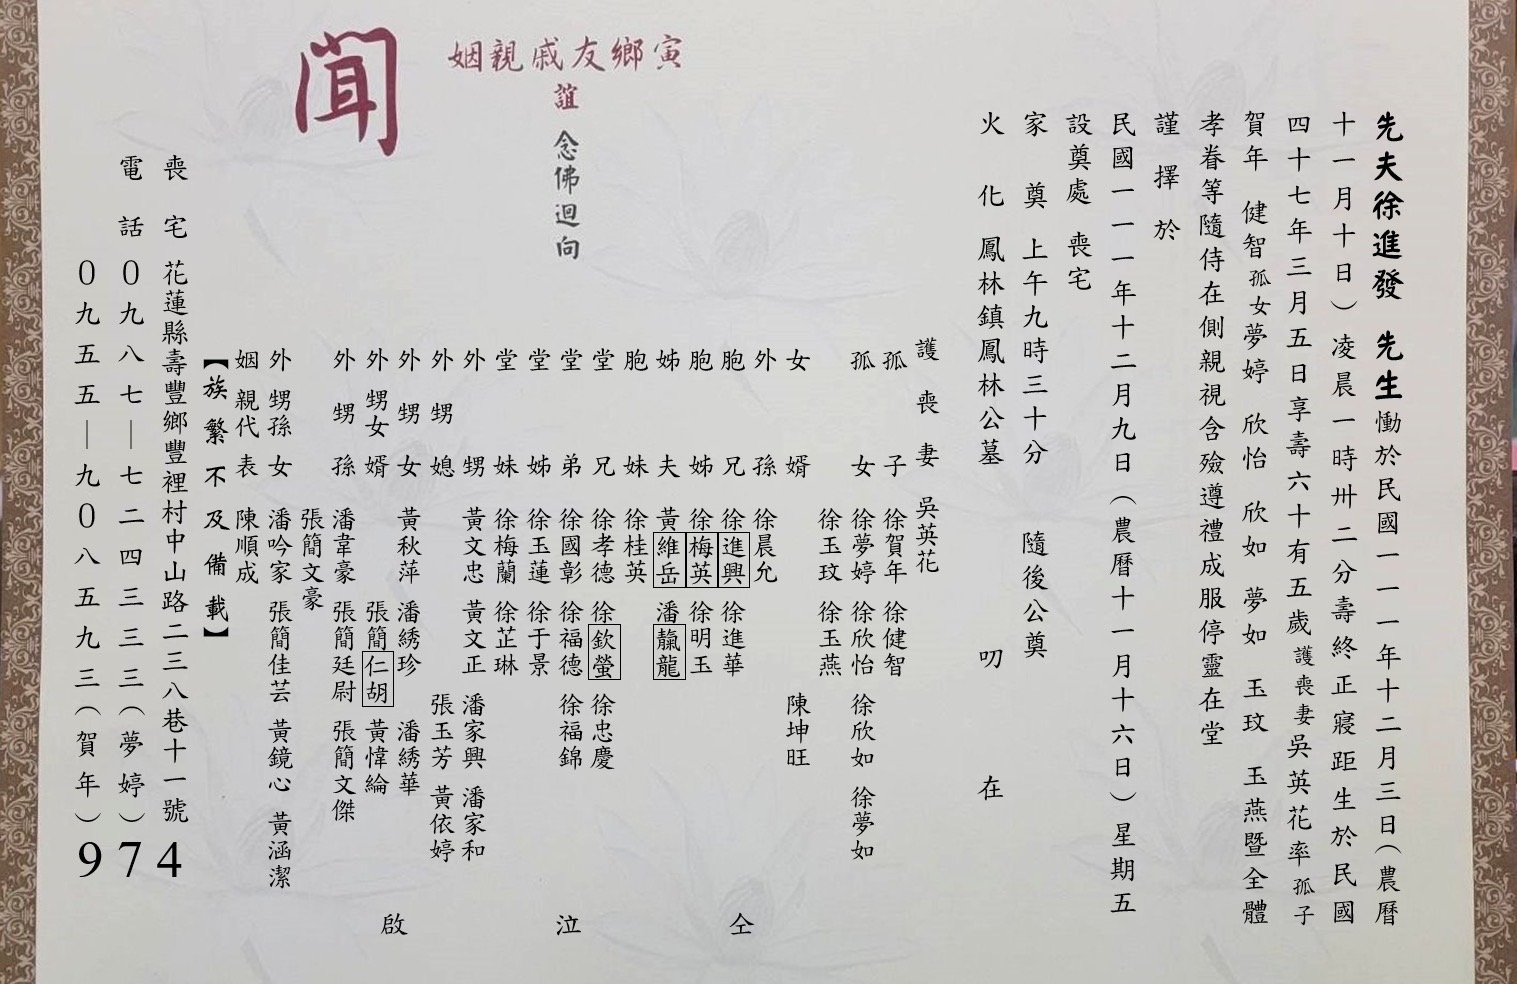 先夫徐進發 先生慟於民國一一一年十二月三日（農曆
十一月十日）凌晨一時卅二分壽終正寢距生於民國
四十七年三月五日享壽六十有五歲護喪妻吳英花率孤子
賀年 健智孤女夢婷 欣怡 欣如 夢如 玉玟 玉燕暨全體
孝眷等隨侍在側親視含殮遵禮成服停靈在堂
謹擇於
民國一一一年十二月九日（農曆十一月十六日）星期五
設奠處 喪宅
家奠 上午九時三十分 隨後公奠
火化 鳳林鎮鳳林公墓 叨在
護喪妻 吳英花
孤子 徐賀年 徐健智
孤女 徐夢婷 徐欣怡 徐欣如 徐夢如
徐玉玟 徐玉燕
女婿 陳坤旺
外孫 徐晨允
胞兄 徐進興 徐進華
胞姊 徐梅英 徐明玉
姊夫 黃維岳 潘龍
胞妹 徐桂英
堂兄 徐孝德 徐欽螢 徐忠慶
堂弟 徐國彰 徐福德 徐福錦
堂姊 徐玉蓮 徐于景
堂妹 徐梅蘭 徐芷琳
外甥 黃文忠 黃文正 潘家興 潘家和
外甥媳 張玉芳 黃依婷
外甥女 黃秋萍 潘綉珍 潘綉華
外甥女婿 張簡仁胡 黃幃綸
外甥孫 潘韋豪 張簡廷尉 張簡文傑
張簡文豪
外甥孫女 潘吟家 張簡佳芸 黃鏡心 黃涵潔
姻親代表 陳順成
仝泣啟
【族繁不及備載】
寅鄉友戚親姻
誼
念佛迴向
聞
喪宅 花蓮縣壽豐鄉豐裡村中山路二三八巷十一號
電話 0九八七－七二四三三三（夢婷）
0九五五－九0八五九三（賀年）
974